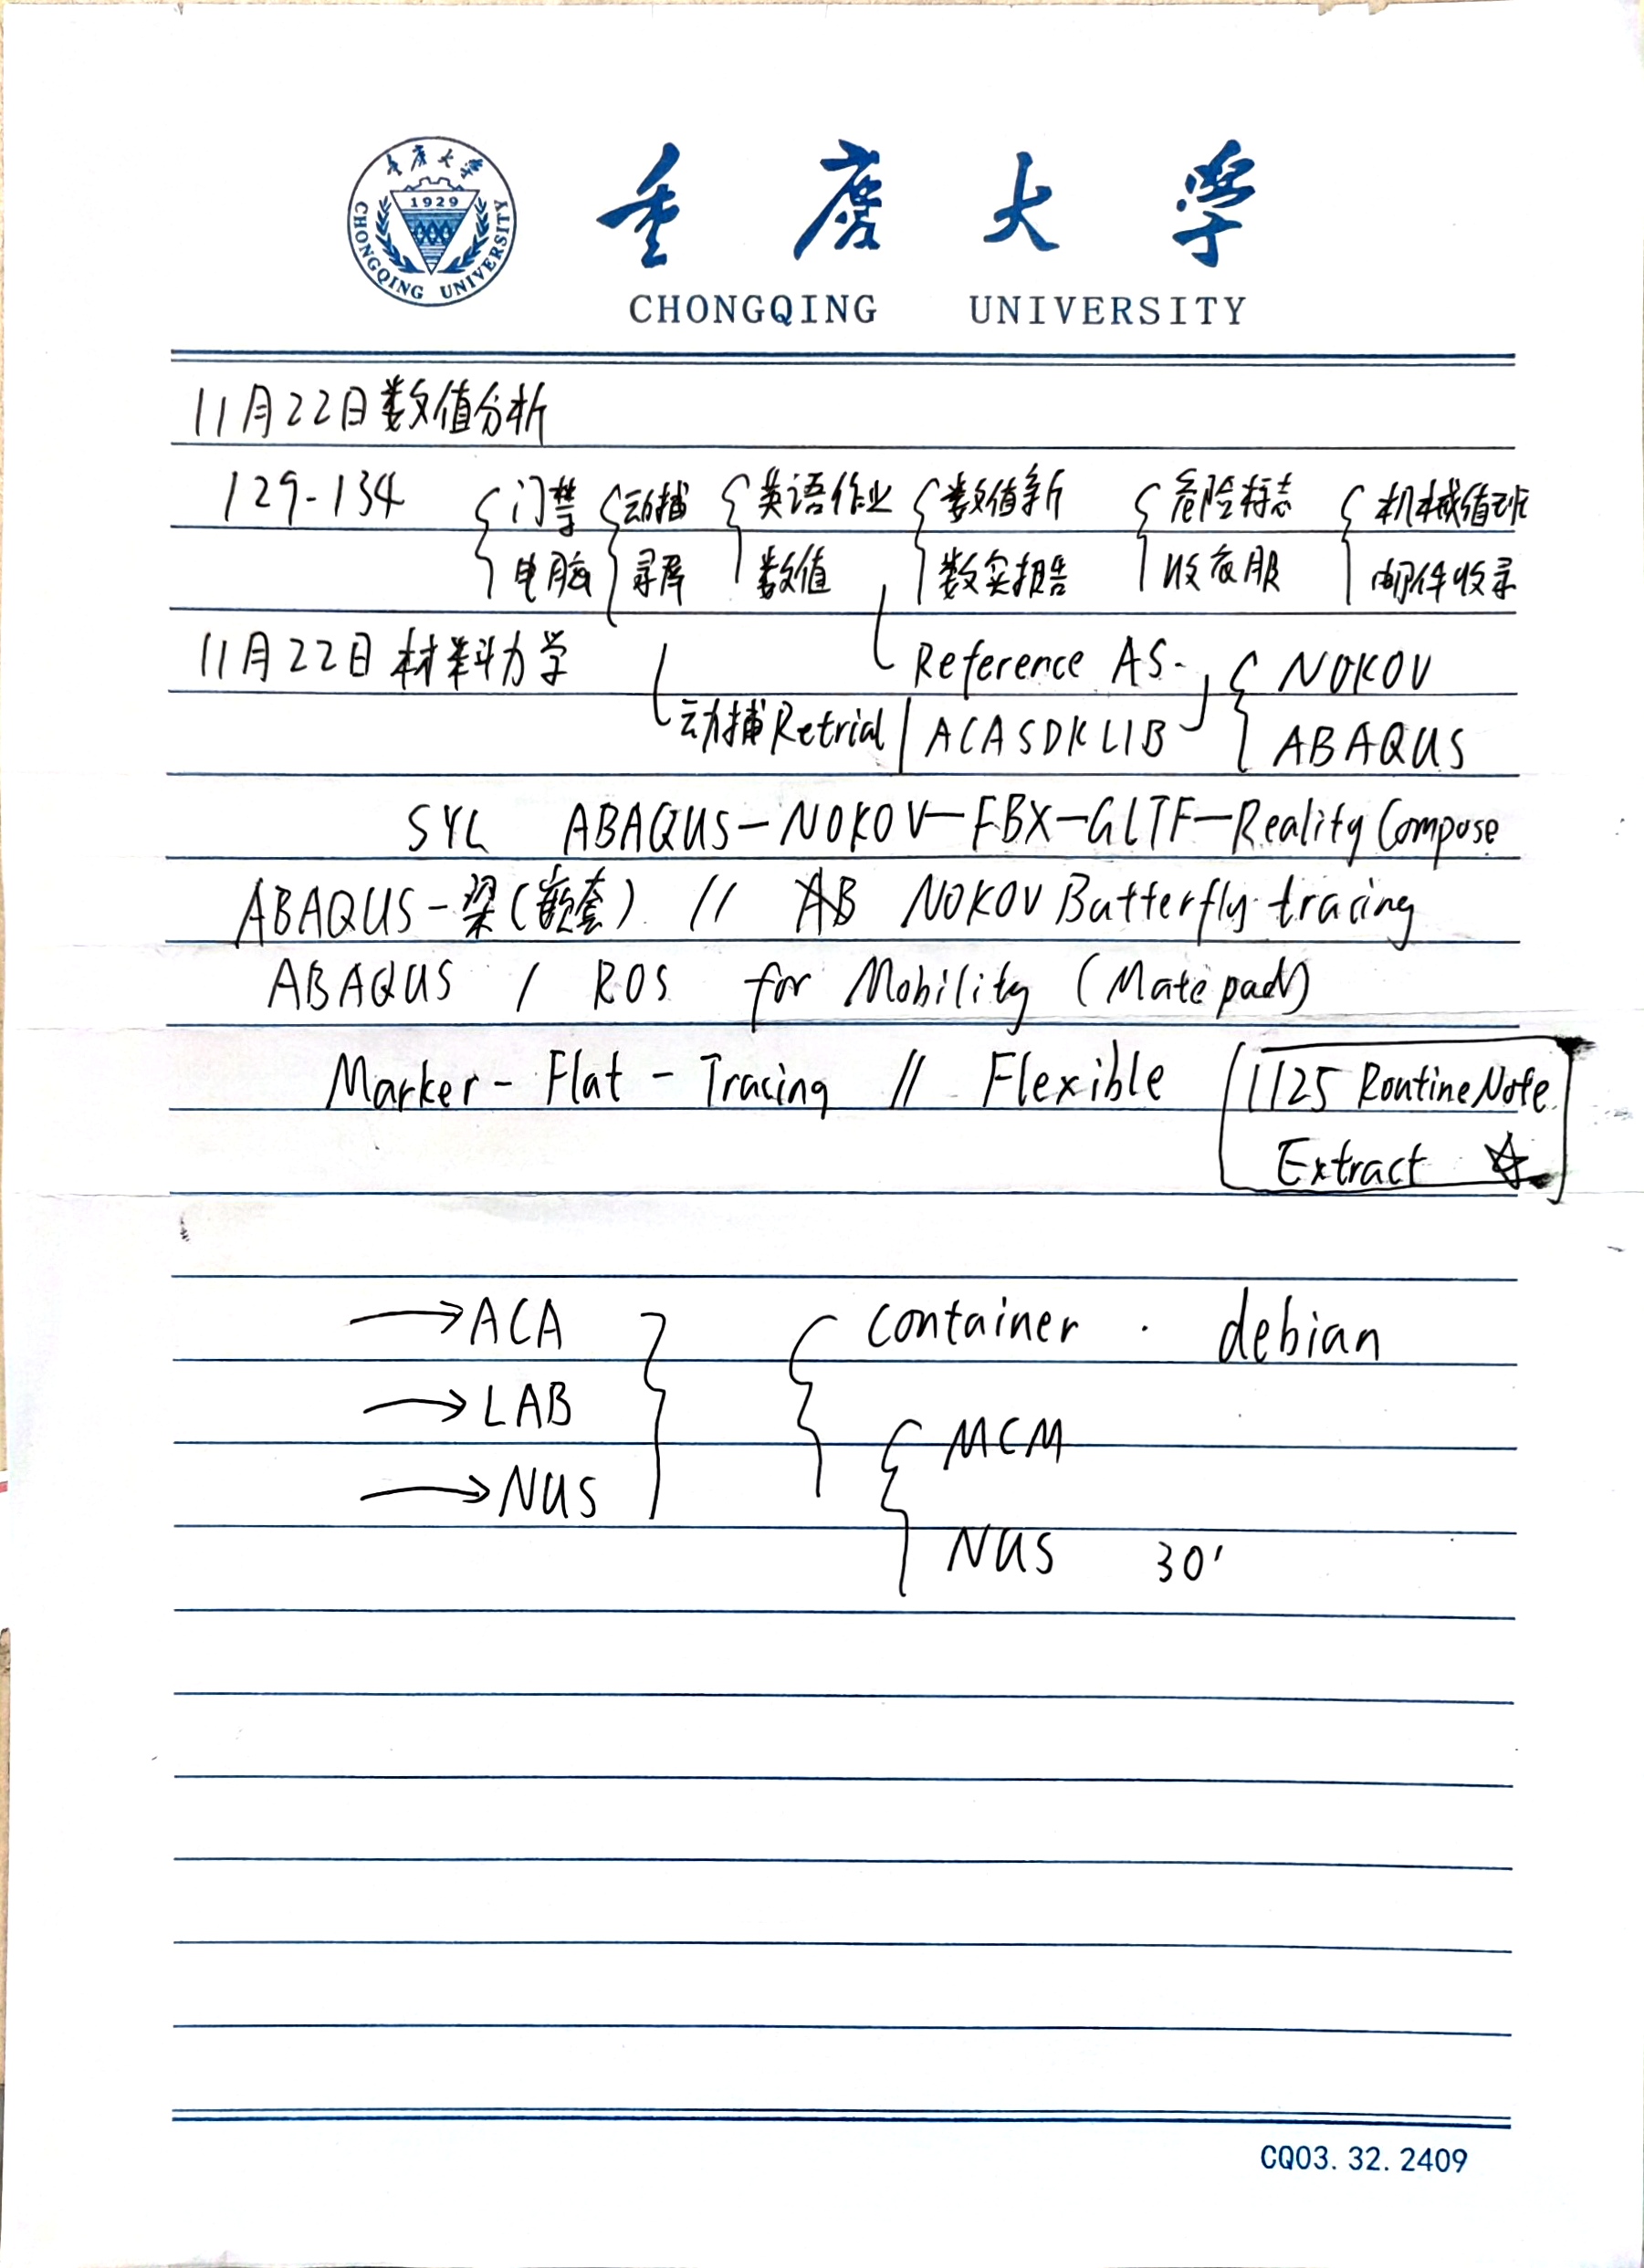 重庆大学
1929
CHONGQING UNIVERSITY
重庆大学
CHONGQING UNIVERSITY
11月22日数值分析
129-134 门禁 动捕 英语作业 数值新 危险标志 机械值班
电脑 寻库 数值 数实报告 收衣服 邮件收录
11月22日材料力学 Reference AS- NOKOV
动捕Retrial ACASDKLIB ABAQUS
SYL ABAQUS-NOKOV-FBX-GLTF-Reality Compose
ABAQUS-梁(嵌套) // AB NOKOV Butterfly tracing
ABAQUS / ROS for Mobility (Matepad)
Marker- Flat - Tracing // Flexible 1125 RoutineNote
Extract ☆
→ACA container · debian
→LAB MCM
→NUS
NUS 30'
CQ03.32.2409